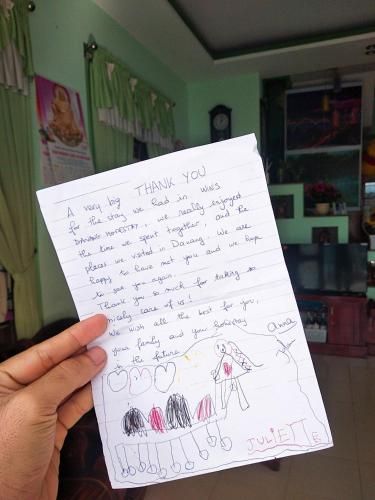 THANK YOU
A very big
for the stay we had in WINS
DANANG HOMESTAY, we really enjoyed
the time we spent together, and the
places we visited in Danang. We are
happy to have met you and we hope
to see you again.
Thank you so much for taking so
nicely care of us!
We wish all the best for you,
your family and you homestay
in the future
Anna
JULIETTE